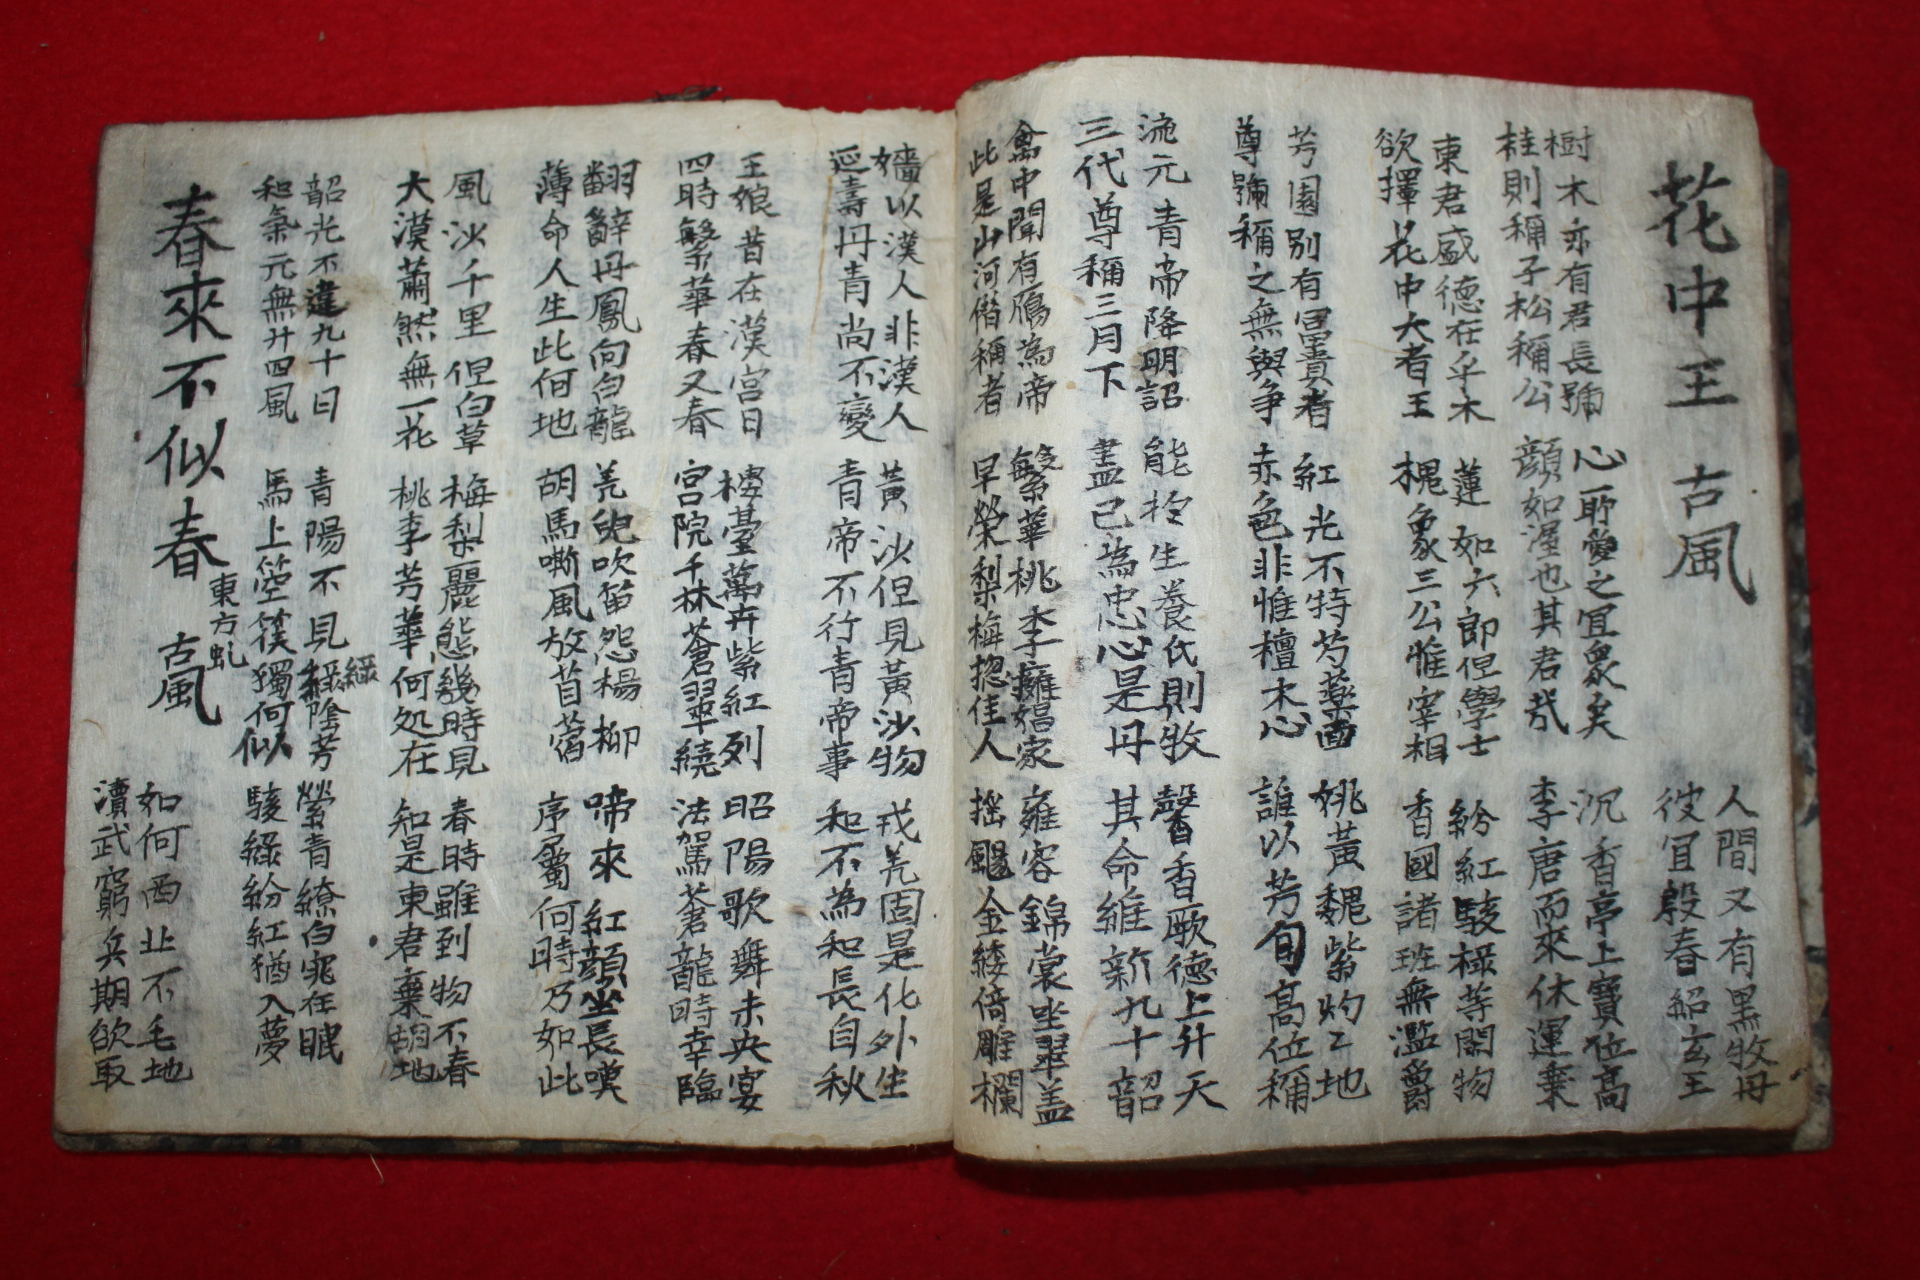 花中王 古風
人間又有黑牧丹
彼宜殿春紹玄王
樹木亦有君長號
桂則稱子松稱公
心一耶愛之宜衆矣
顔如渥也其君哉
沉香亭上寶位高
李唐而來休運棄
東君盛德在乎木
欲擇花中大者王
蓮如六郎但學士
槐象三公惟宰相
紛紅駿綠等閑物
香國諸班無濫爵
芳園別有冨貴者
尊號稱之無與争
紅光不特芍藥酉
赤色非惟檀木心
姚黃魏紫灼々地
誰以芳旬高位稱
流元青帝降明詔
三代尊稱三月下
能柃生養氏則牧
盡己為忠心是丹
馨香厥德上升天
其命維新九十韶
禽中聞有鴈為帝
此是山河僭稱者
繁華桃李擁娼家
早榮梨梅揔佳人
雍容錦裳坐翠盖
搖颺金縷倚雕欄
嬙以漢人非漢人
延壽丹青尚不變
黃沙但見黃沙物
青帝不行青帝事
戎羌固是化外生
和不為和長自秋
王娘昔在漢宮日
四時繁華春又春
樓臺萬卉紫紅列
宮院千林蒼翠繞
昭陽歌舞未央宴
法駕蒼龍時幸臨
翻辭丹鳳向白龍
薄命人生此何地
羌兒吹笛怨楊柳
胡馬嘶風放苜蓿
啼來紅顔坐長嘆
序屬何時乃如此
風沙千里但白草
大漠蕭然無一花
梅梨麗態幾時見
桃李芳華何処在
春時雖到物不春
知是東君棄胡地
韶光不違九十日
和氣元無廿四風
青陽不見綠陰芳
綠
馬上箜篌獨何似
縈青繚白宛在眠
駿綠紛紅猶入夢
東方虬
春來不似春 古風
如何西北不毛地
瀆武窮兵期欲取